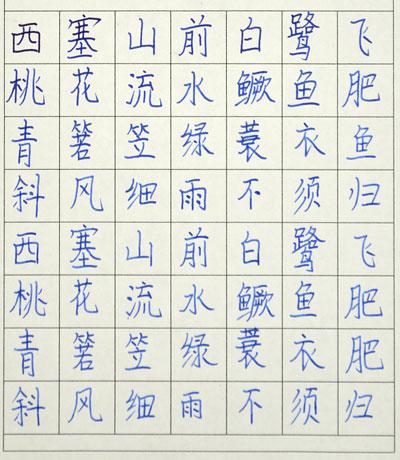 西塞山前白鹭飞
桃花流水鳜鱼肥
青箬笠绿蓑衣鱼
斜风细雨不须归
西塞山前白鹭飞
桃花流水鳜鱼肥
青箬笠绿蓑衣肥
斜风细雨不须归